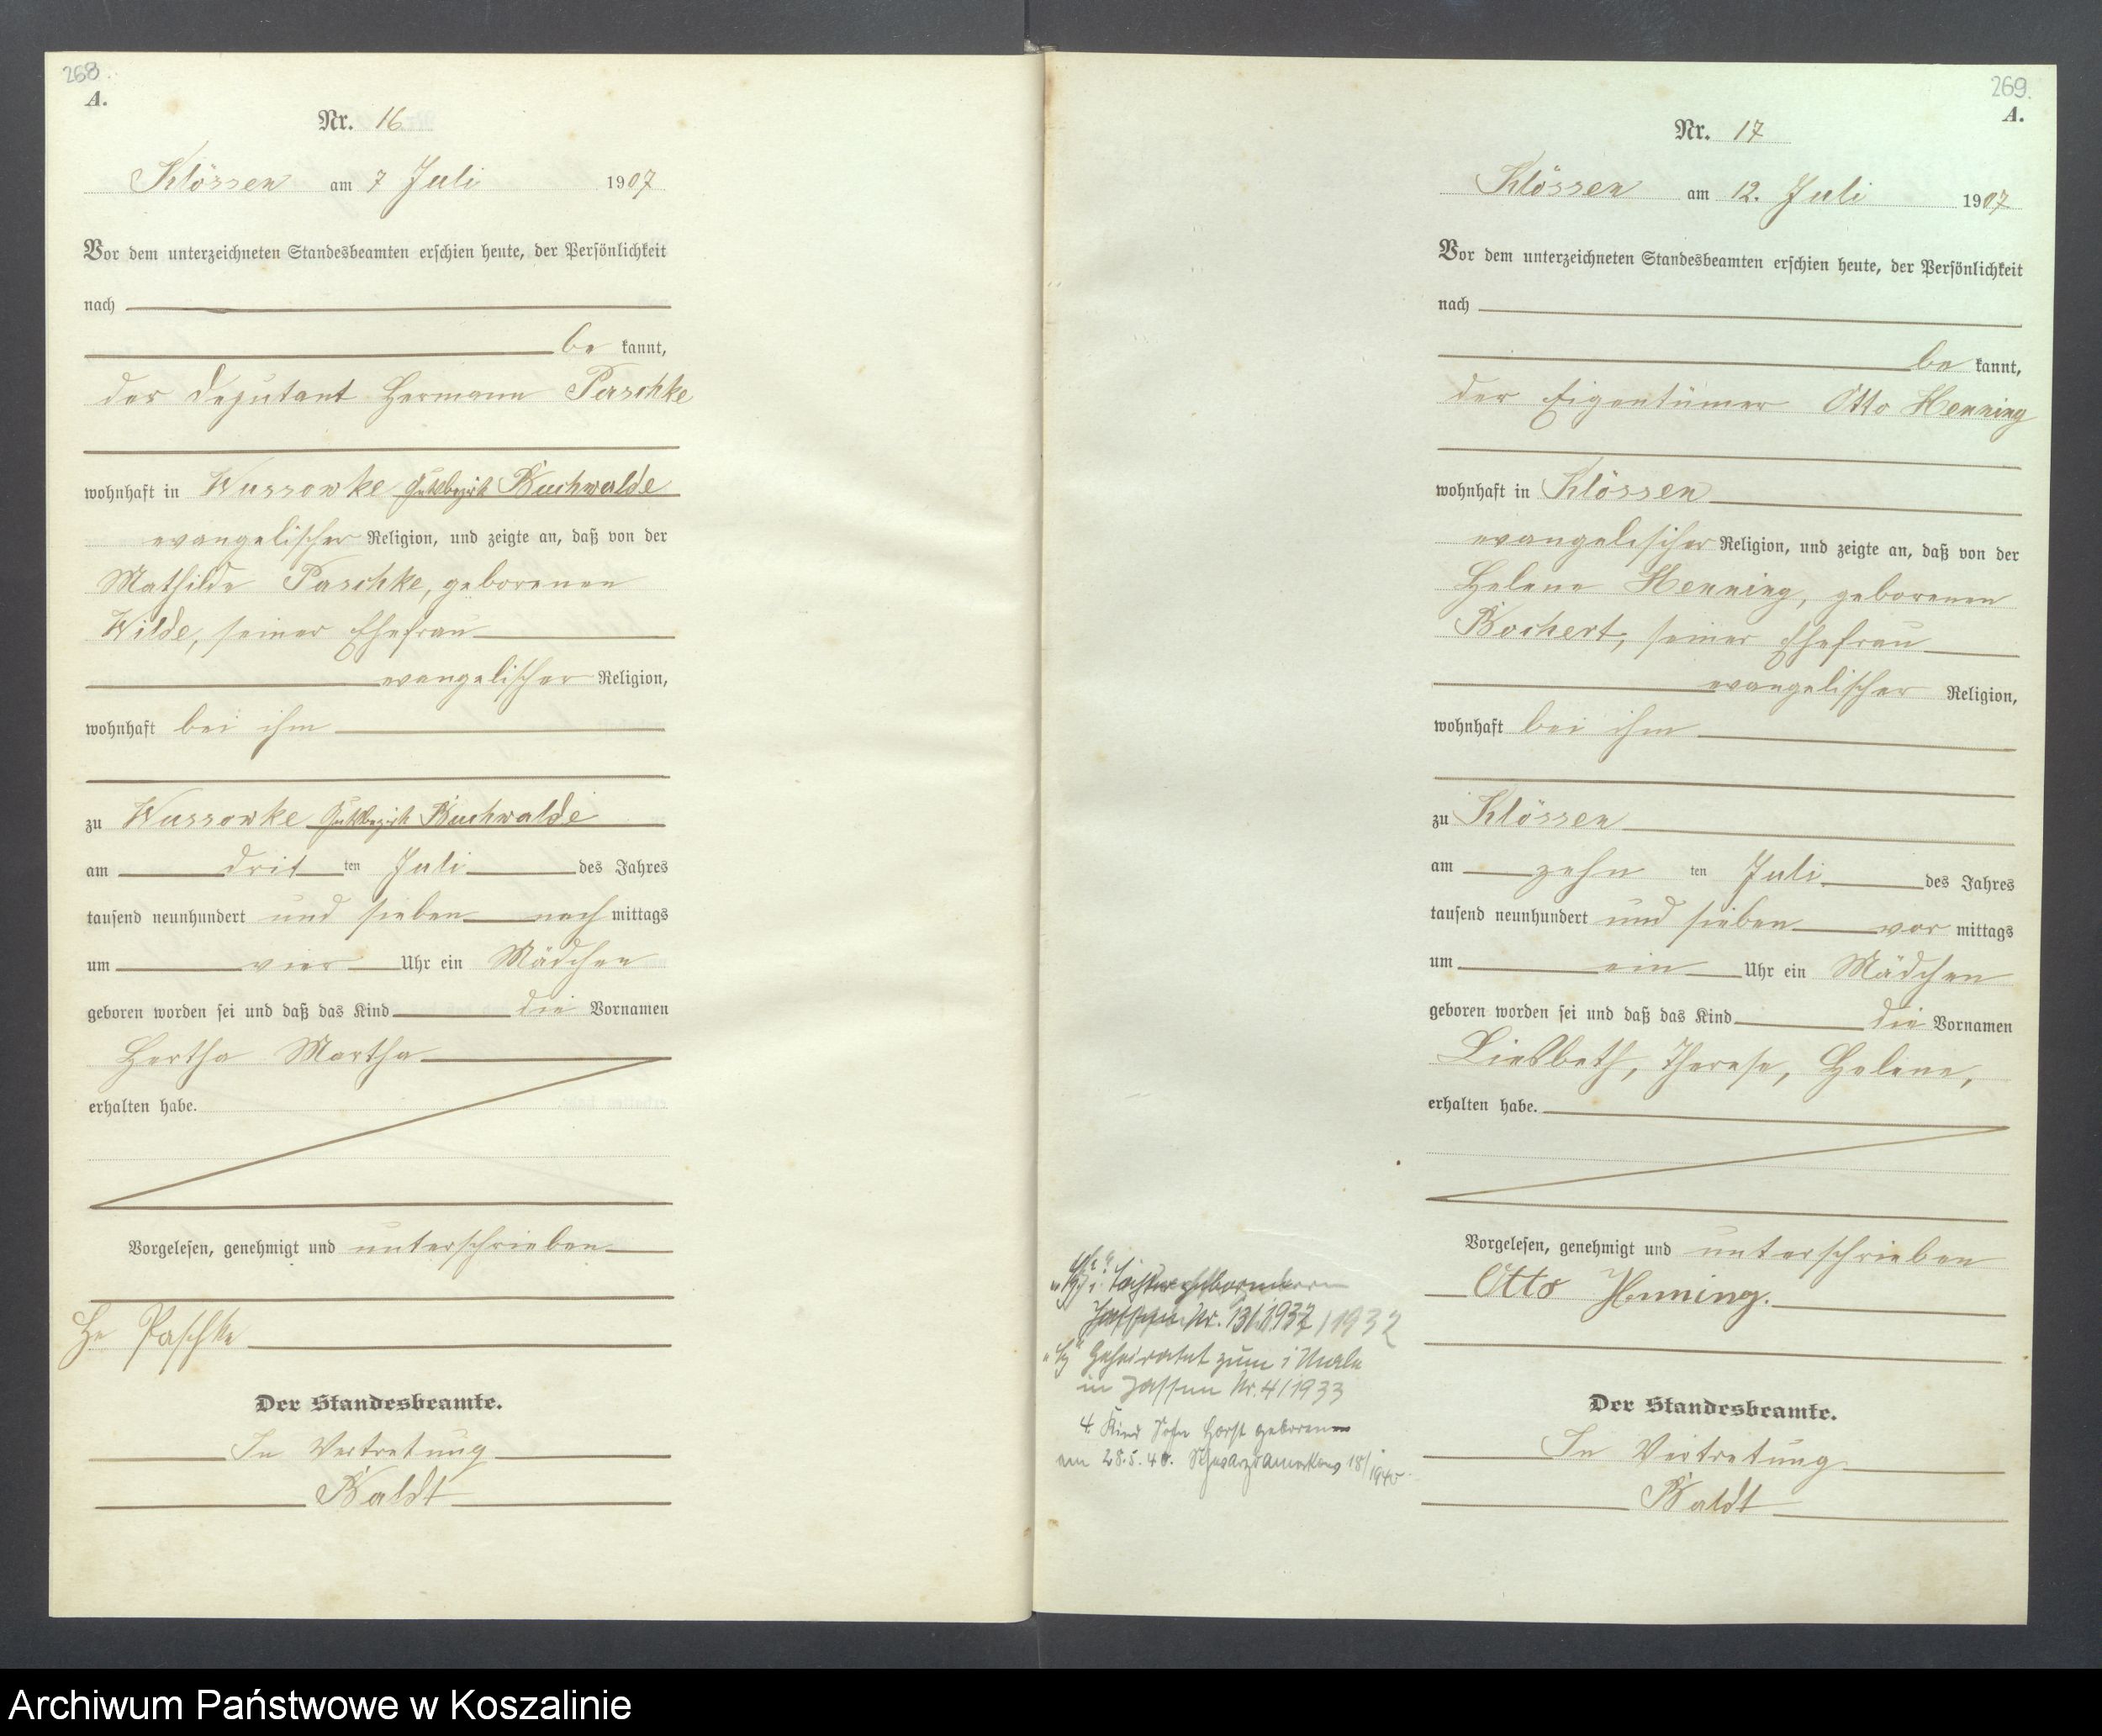 268.
A.
Nr. 16
Klössen am 7 Juli 1907
Vor dem unterzeichneten Standesbeamten erschien heute, der Persönlichkeit
nach
be kannt,
der Deputant Hermann Paschke
wohnhaft in Wussowke Gutsbezirk Buchwalde
evangelischer Religion, und zeigte an, daß von der
Mathilde Paschke, geborenen
Wilde, seiner Ehefrau
evangelischer Religion,
wohnhaft bei ihm
zu Wussowke Gutsbezirk Buchwalde
am drit ten Juli des Jahres
tausend neunhundert und sieben nach mittags
um vier Uhr ein Mädchen
geboren worden sei und daß das Kind die Vornamen
Hertha Martha
erhalten habe.
Vorgelesen, genehmigt und unterschrieben
He Paschke
Der Standesbeamte.
In Vertretung
Baldt
269.
A.
Nr. 17
Klössen am 12. Juli 1907
Vor dem unterzeichneten Standesbeamten erschien heute, der Persönlichkeit
nach
be kannt,
der Eigentümer Otto Henning
wohnhaft in Klössen
evangelischer Religion, und zeigte an, daß von der
Helene Henning, geborenen
Bochert, seiner Ehefrau
evangelischer Religion,
wohnhaft bei ihm
zu Klössen
am zehn ten Juli des Jahres
tausend neunhundert und sieben vor mittags
um ein Uhr ein Mädchen
geboren worden sei und daß das Kind die Vornamen
Liesbeth, Therese, Helene,
erhalten habe.
Vorgelesen, genehmigt und unterschrieben
Otto Henning.
Der Standesbeamte.
In Vertretung
Baldt
Tochter geboren
Jassen Nr. 13/1932 /1932
Geheiratet zum 1 Male
in Jassen Nr. 4/1933
4. Kind Sohn Horst geboren
am 28.5.40. 18/1940
Archiwum Państwowe w Koszalinie